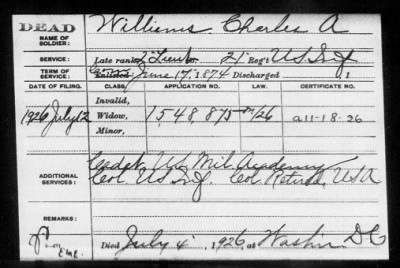 DEAD
NAME OF SOLDIER: Williams, Charles A
SERVICE: Late rank, 2' Lieut 21' Reg't U.S. Inf
TERM OF SERVICE: Enlisted June 17, 1874 Discharged , 1
DATE OF FILING. CLASS. APPLICATION NO. LAW. CERTIFICATE NO.
Invalid,
1926 July 12 Widow, 1548875 a11-18-26
Minor,
ADDITIONAL SERVICES: Cadet U.S. Mil. Academy
Col. U.S. Inf. Col. Retired, U.S.A
REMARKS:
Died July 4 1926, at Washn D.C